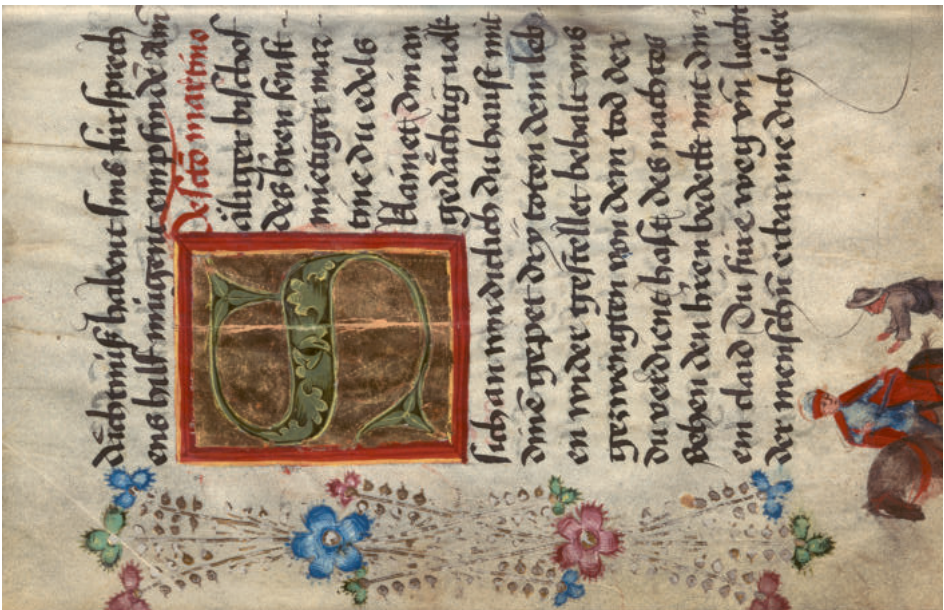 dächtniß habent sins fürsprech
ens hilff mügent empfindē Am
De scto martino
Säliger bischof
des hren senft
mietiger mar
tine du edels
klainet d man
gedächtig
sich an wirdiclich du hast mit
dinē gepet dry toten dem leb
en wider gestellet behalt vns
von dem tod der
du verdient hast des nachtes
sehen den hren bedeckt mit din
em claid Du füre weg vn̄ liecht
der menschen erbarme dich über